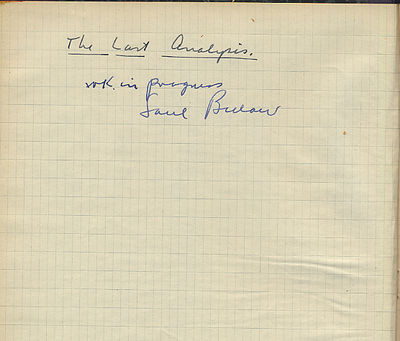 The Last Analysis.
wk. in progress
Saul Bellow